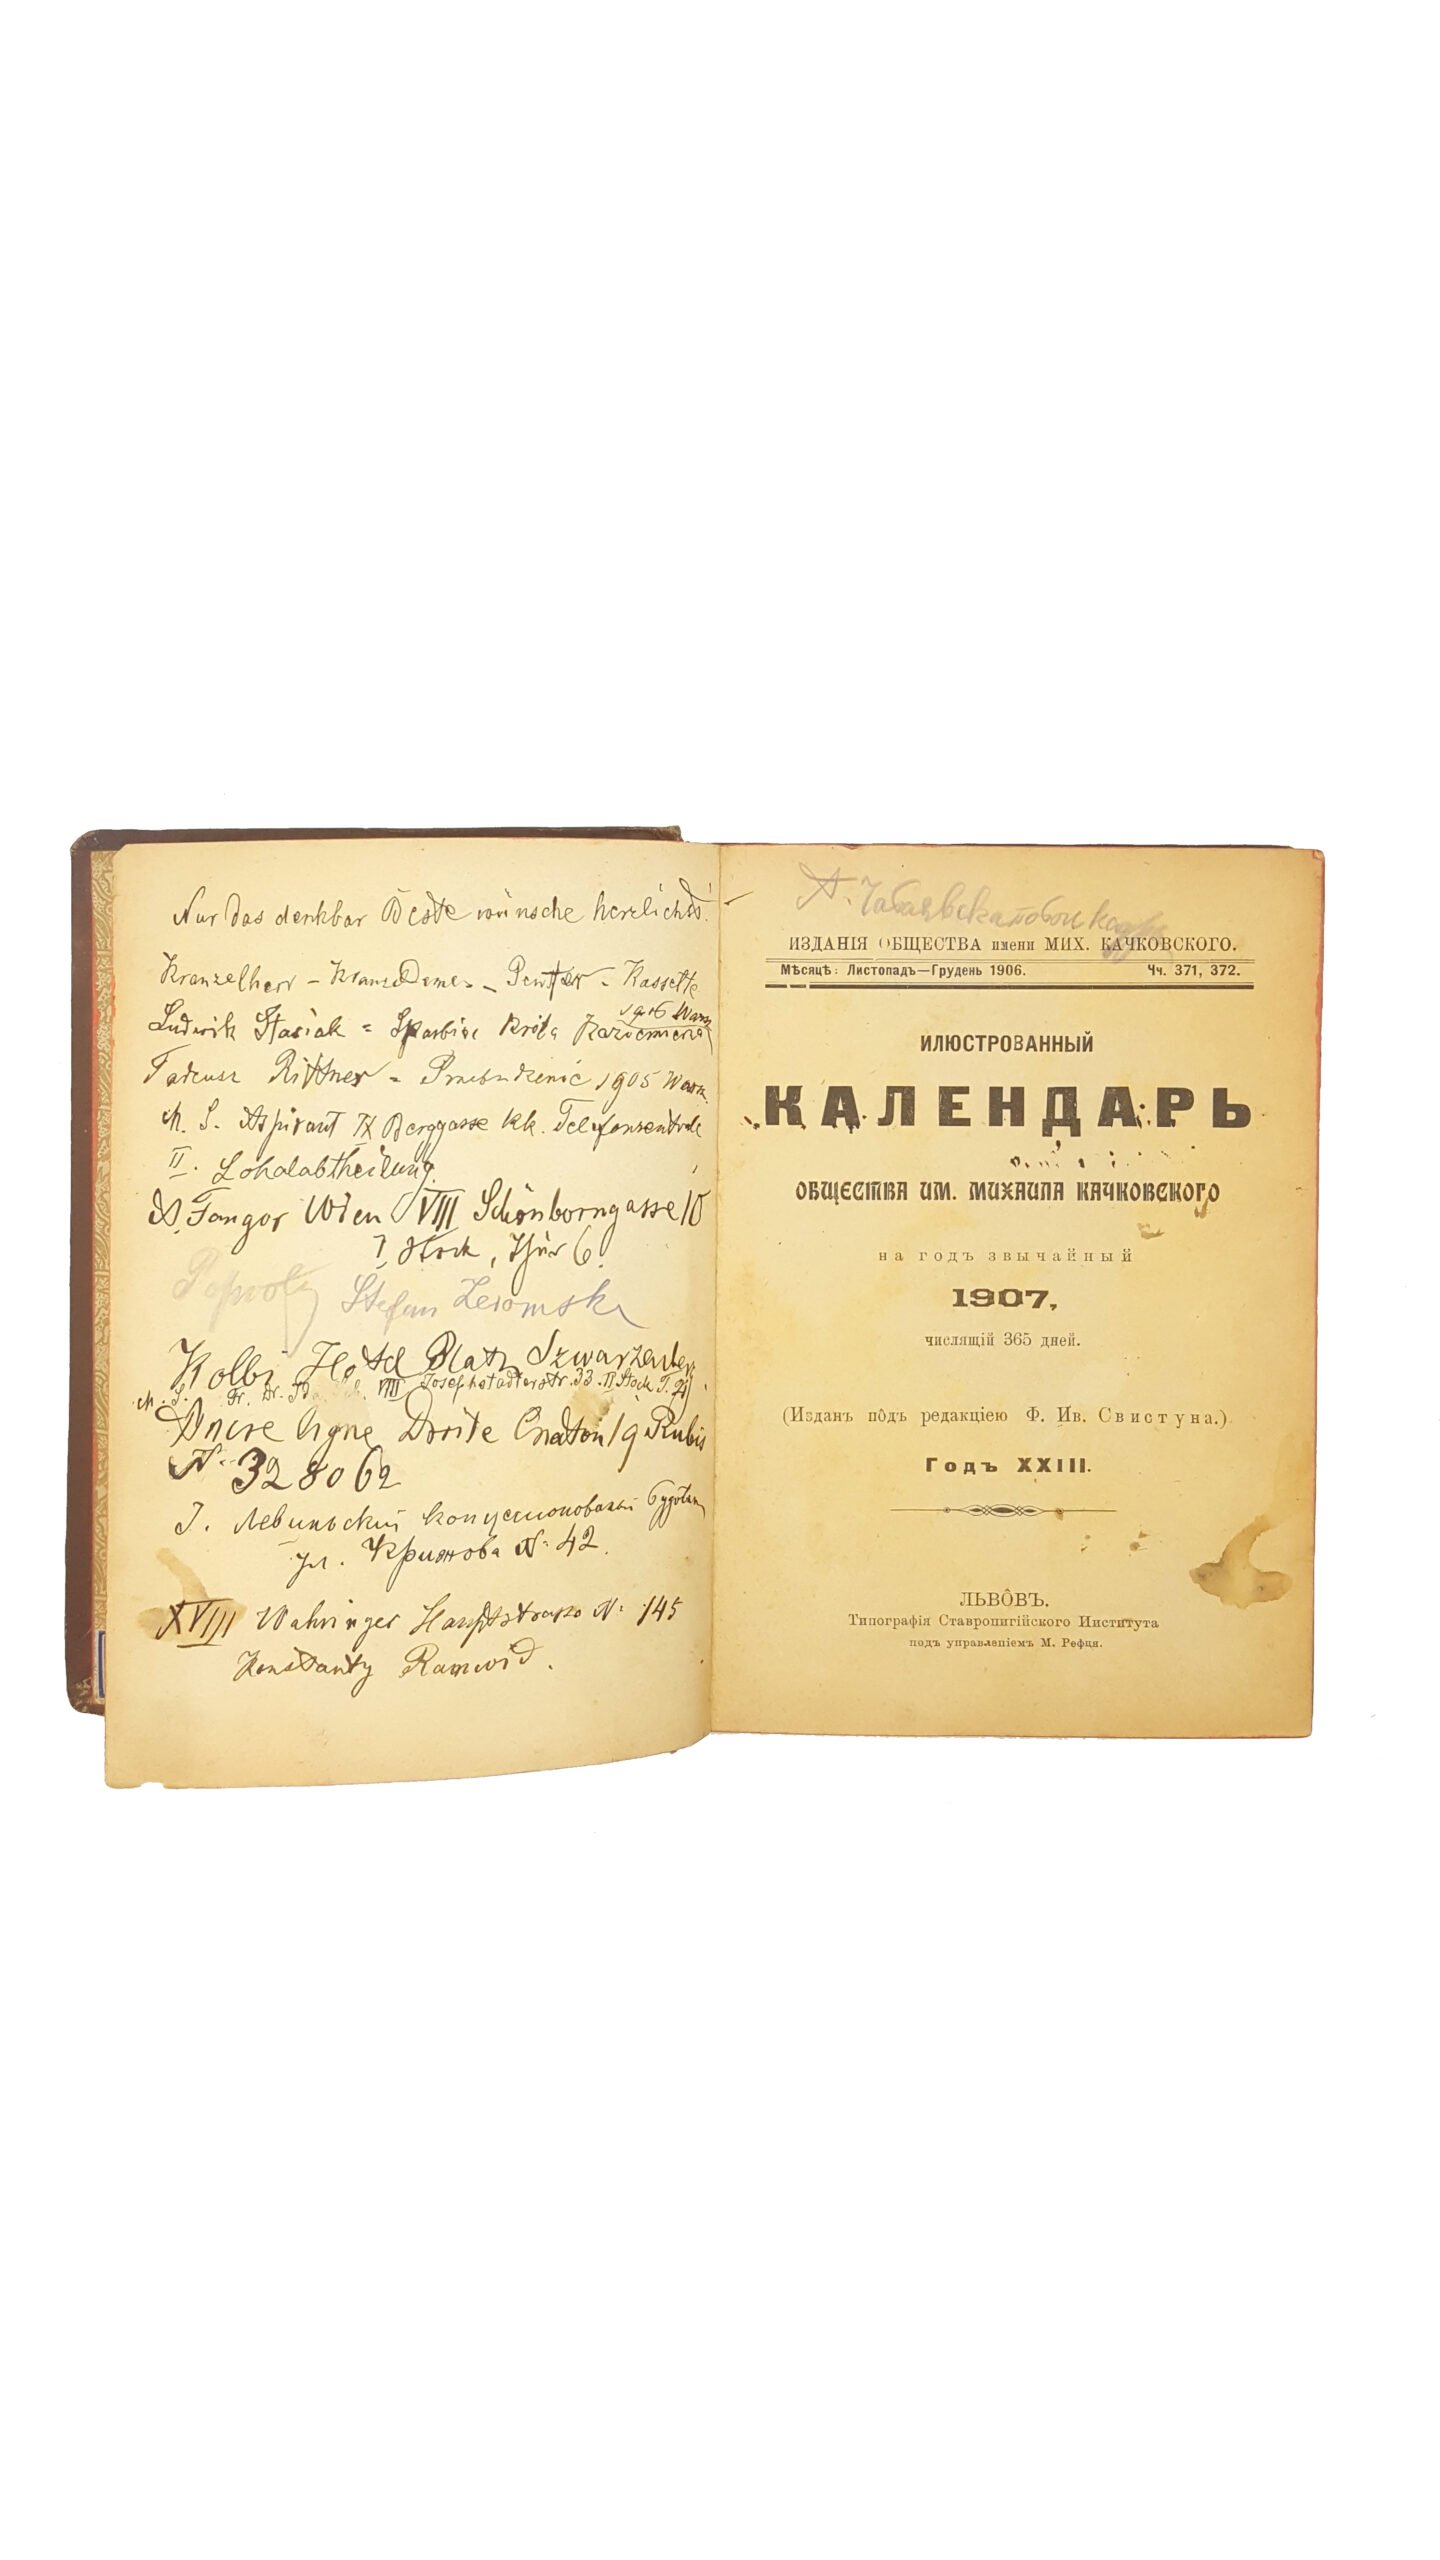 Nur das denkbar Beste wünsche herzlichst!
Kranzelherr - KranzDame - - Kassette
1906 Warsz
Ludwik Stasiak = Króla Kazimierza
Tadeusz Rittner = Przebudzenie 1905 Warsz.
M. S. Aspirant IX Berggasse kk. Telefonzentrale
II. Lokalabtheilung
Wien VIII Schönborngasse 10
I. Stock, Thür 6.
Stefan Zeromski
Kolbi Hotel Platz Szwarzenber
M. S. Fr. Dr. VIII Josephstädterstr. 33. II Stock T.
Ancre Ligne Droite 19 Rubis
N. 328062
І. Левиньский
ул. Крижова N. 42.
XVIII Wahringer Hauptstrasse N: 145
Konstanty
А.
ИЗДАНІЯ ОБЩЕСТВА имени МИХ. КАЧКОВСКОГО.
Мѣсяцѣ: Листопадъ—Грудень 1906. Чч. 371, 372.
ИЛЮСТРОВАННЫЙ
КАЛЕНДАРЬ
ОБЩЕСТВА ИМ. МИХАИЛА КАЧКОВСКОГО
на годъ звычайный
1907,
числящій 365 дней.
(Изданъ по̂дъ редакціею Ф. Ив. Свистуна.)
Годъ XXIII.
ЛЬВО̂ВЪ.
Типографія Ставропигійского Института
подъ управленіемъ М. Рефця.